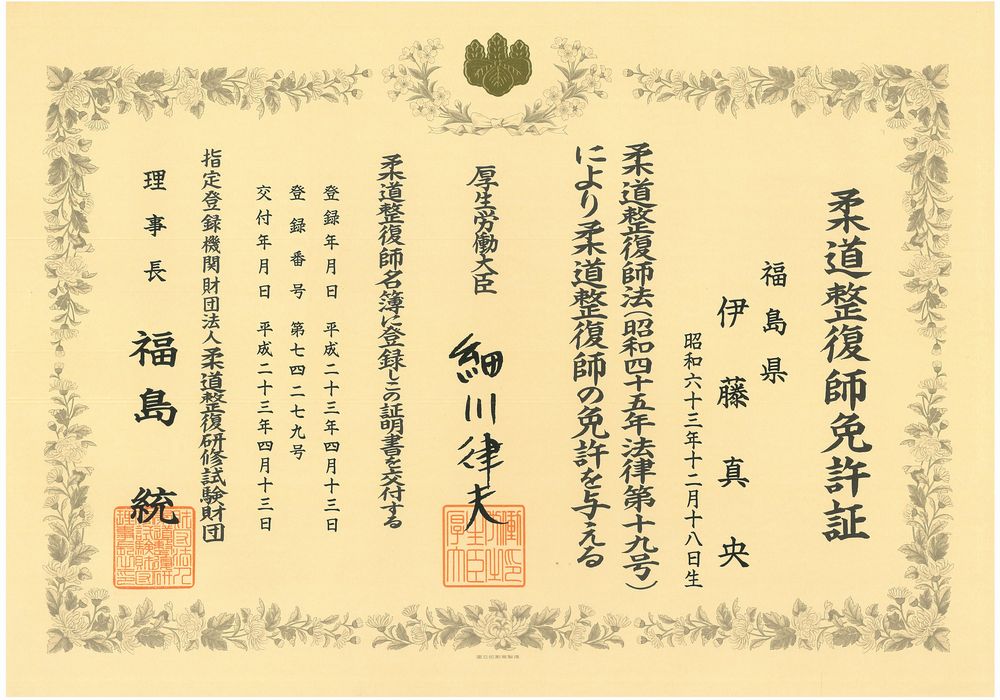 柔道整復師免許証
福島県
伊藤真央
昭和六十三年十二月十八日生
柔道整復師法(昭和四十五年法律第十九号)
により柔道整復師の免許を与える
厚生労働大臣 細川律夫
柔道整復師名簿に登録しこの証明書を交付する
登録年月日 平成二十三年四月十三日
登録番号 第七四二七九号
交付年月日 平成二十三年四月十三日
指定登録機関財団法人柔道整復研修試験財団
理事長 福島統